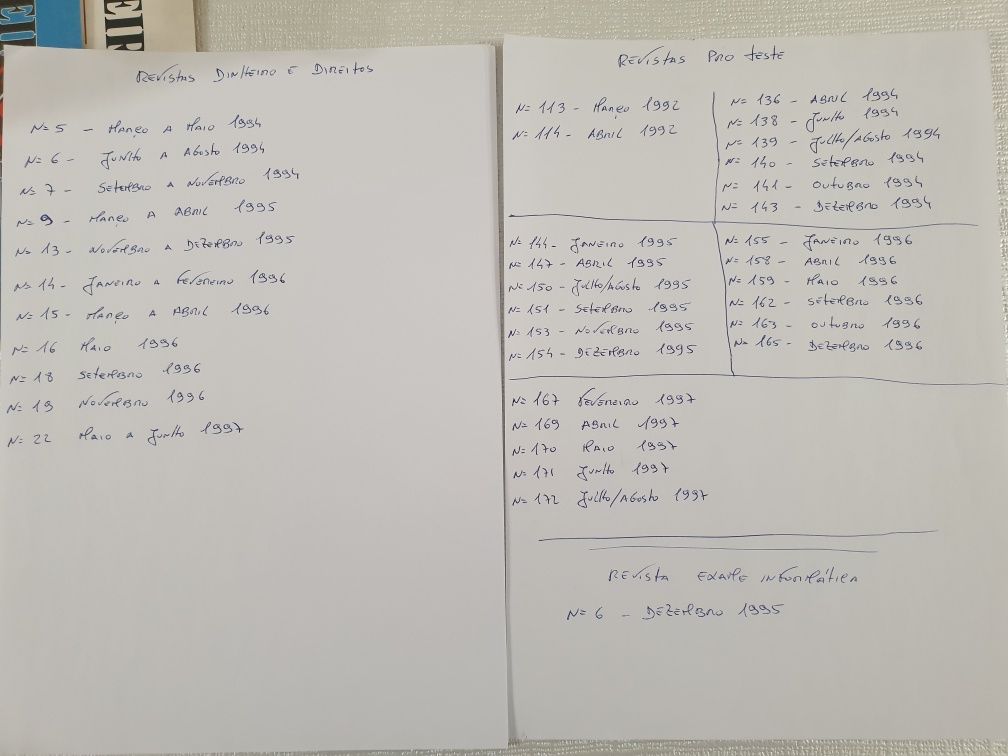 EIR
REVISTAS DINHEIRO E DIREITOS
Nº 5 - MARÇO A MAIO 1994
Nº 6 - JUNHO A AGOSTO 1994
Nº 7 - SETEMBRO A NOVEMBRO 1994
Nº 9 - MARÇO A ABRIL 1995
Nº 13 - NOVEMBRO A DEZEMBRO 1995
Nº 14 - JANEIRO A FEVEREIRO 1996
Nº 15 - MARÇO A ABRIL 1996
Nº 16 MAIO 1996
Nº 18 SETEMBRO 1996
Nº 19 NOVEMBRO 1996
Nº 22 MAIO A JUNHO 1997
REVISTAS PRO TESTE
Nº 113 - MARÇO 1992
Nº 114 - ABRIL 1992
Nº 136 - ABRIL 1994
Nº 138 - JUNHO 1994
Nº 139 - JULHO/AGOSTO 1994
Nº 140 - SETEMBRO 1994
Nº 141 - OUTUBRO 1994
Nº 143 - DEZEMBRO 1994
Nº 144 - JANEIRO 1995
Nº 147 - ABRIL 1995
Nº 150 - JULHO/AGOSTO 1995
Nº 151 - SETEMBRO 1995
Nº 153 - NOVEMBRO 1995
Nº 154 - DEZEMBRO 1995
Nº 155 - JANEIRO 1996
Nº 158 - ABRIL 1996
Nº 159 - MAIO 1996
Nº 162 - SETEMBRO 1996
Nº 163 - OUTUBRO 1996
Nº 165 - DEZEMBRO 1996
Nº 167 FEVEREIRO 1997
Nº 169 ABRIL 1997
Nº 170 MAIO 1997
Nº 171 JUNHO 1997
Nº 172 JULHO/AGOSTO 1997
REVISTA EXAME INFORMÁTICA
Nº 6 - DEZEMBRO 1995